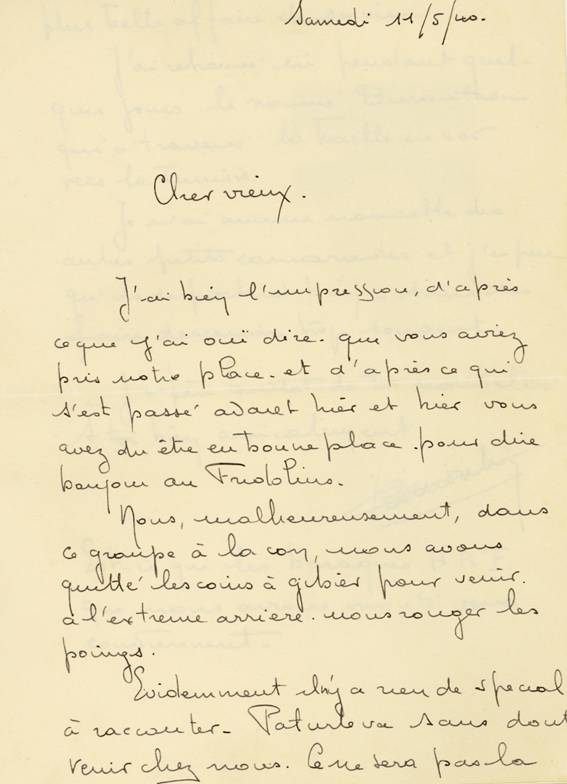 Samedi 11/5/40.
Cher vieux.
J'ai bien l'impression, d'après
ce que j'ai ouï dire. que vous aviez
pris notre place. et d'après ce qui
s'est passé avant hier et hier vous
avez du être en bonne place. pour dire
bonjour au Fridolins.
Nous, malheureusement, dans
ce groupe à la con, nous avons
quitté les coins à gibier pour venir.
à l'extreme arriere. nous ronger les
poings.
Evidemment il n'y a rien de special
à raconter. va sans dout
venir chez nous. Ce ne sera pas la